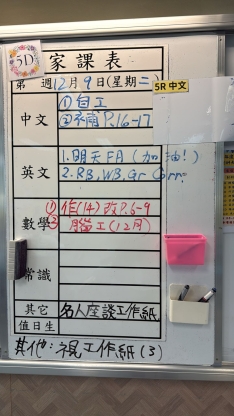 5D
家課表
第 週12月9日(星期二)
5R 中文
中文
①自工
②補 P.16-17
英文
1.明天FA(加油!)
2.RB,WB,Gr Corr
數學
①作(14)改P.5-9
②腦工(12月)
常識
其它
名人座談工作紙
值日生
其他:視工作紙(3)